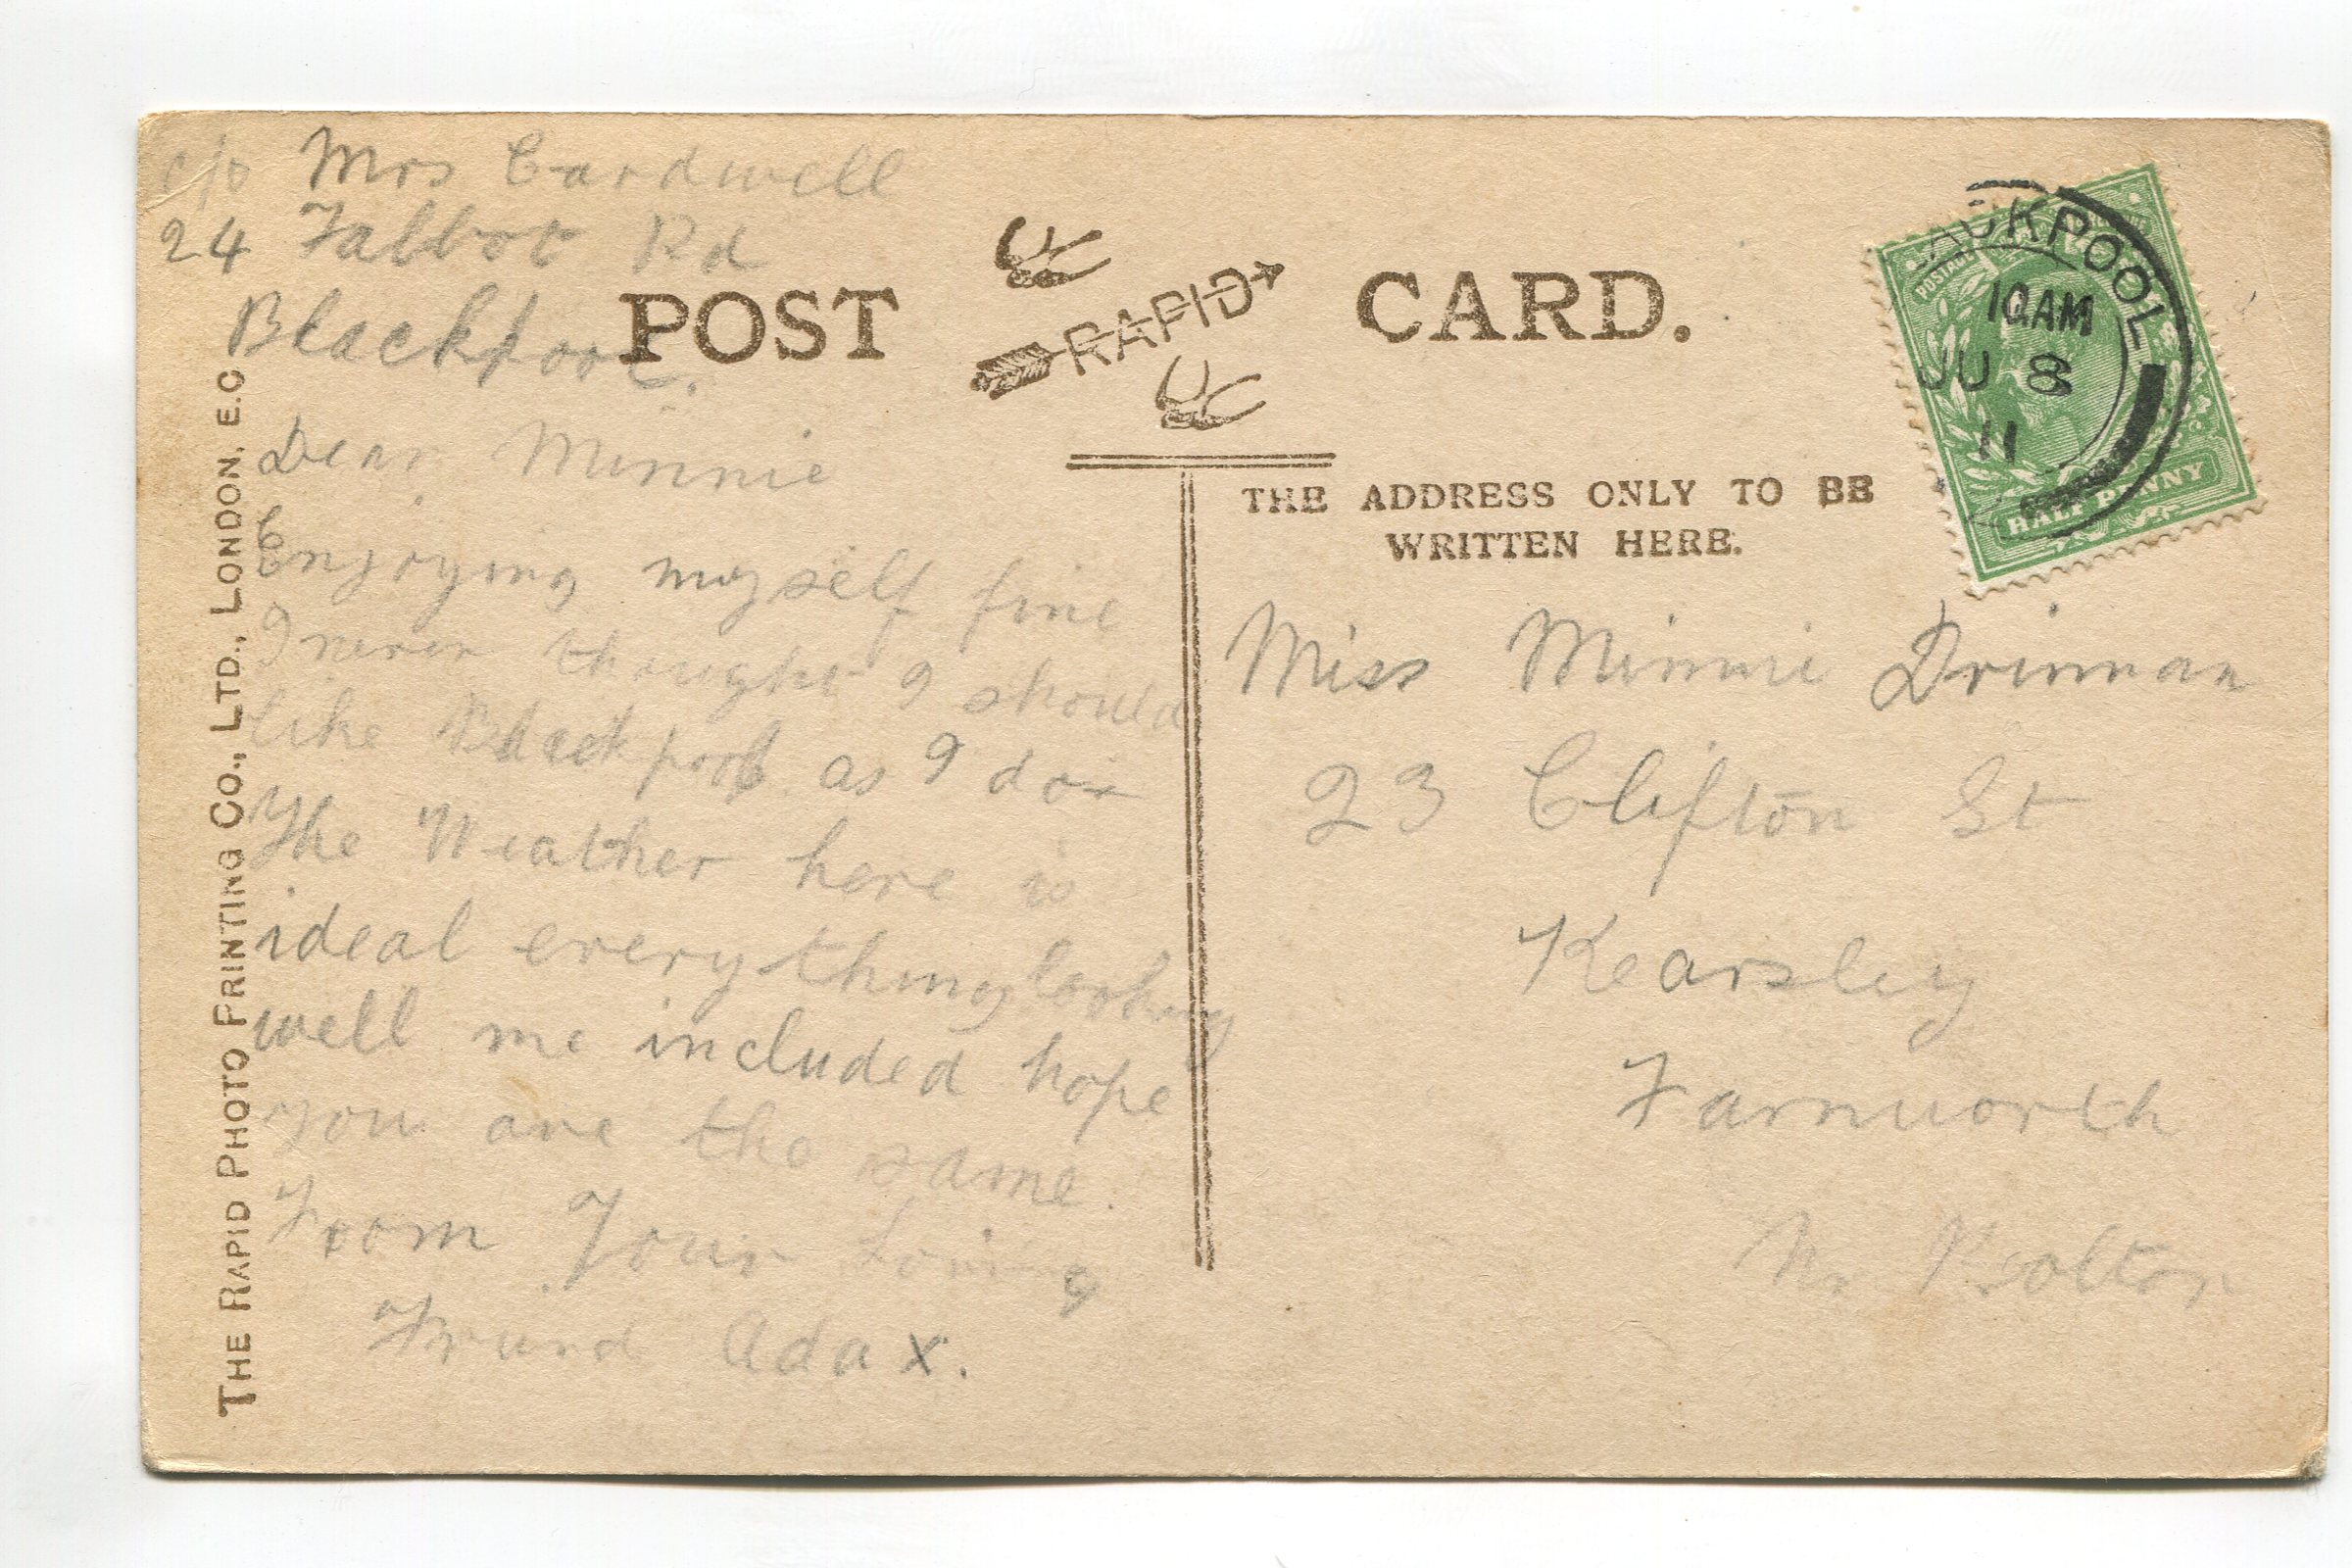 c/o Mrs Cardwell
24 Talbot Rd
Blackpool.
Dear Minnie
Enjoying myself fine
I never thought I should
like Blackpool as I do
The Weather here is
ideal everything looking
well me included hope
you are the same.
From Your Loving
Friend Ada x.
POST CARD.
RAPID
THE ADDRESS ONLY TO BE
WRITTEN HERE.
Miss Minnie Drinnan
23 Clifton St
Kearsley
Farnworth
Nr Bolton
THE RAPID PHOTO PRINTING CO., LTD., LONDON, E.C
ACKPOOL
10AM
JU 8
11
POSTAGE
HALFPENNY